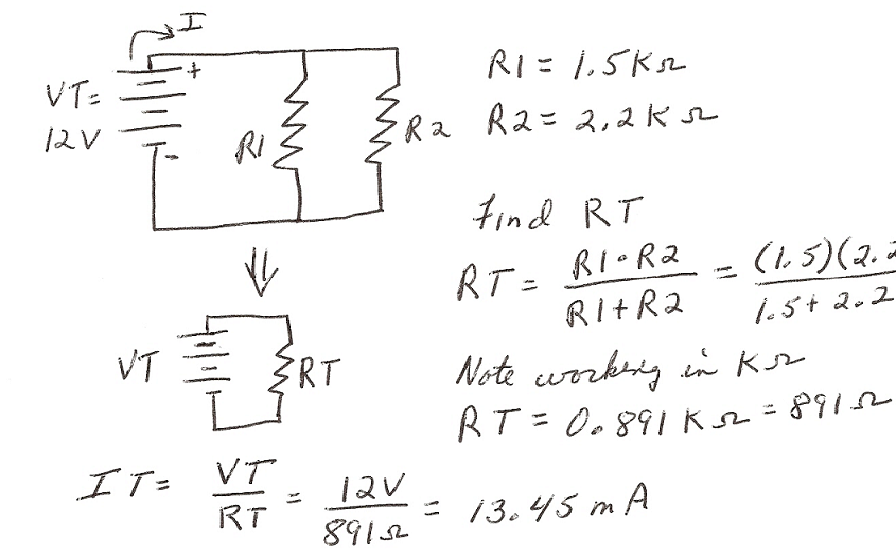 I
+
VT=
12V
-
R1
R2
R1 = 1.5KΩ
R2 = 2.2KΩ
Find RT
RT = R1·R2 / R1+R2 = (1.5)(2.2 / 1.5+2.2
Note working in KΩ
RT = 0.891KΩ = 891Ω
⇓
VT
RT
IT = VT / RT = 12V / 891Ω = 13.45 mA